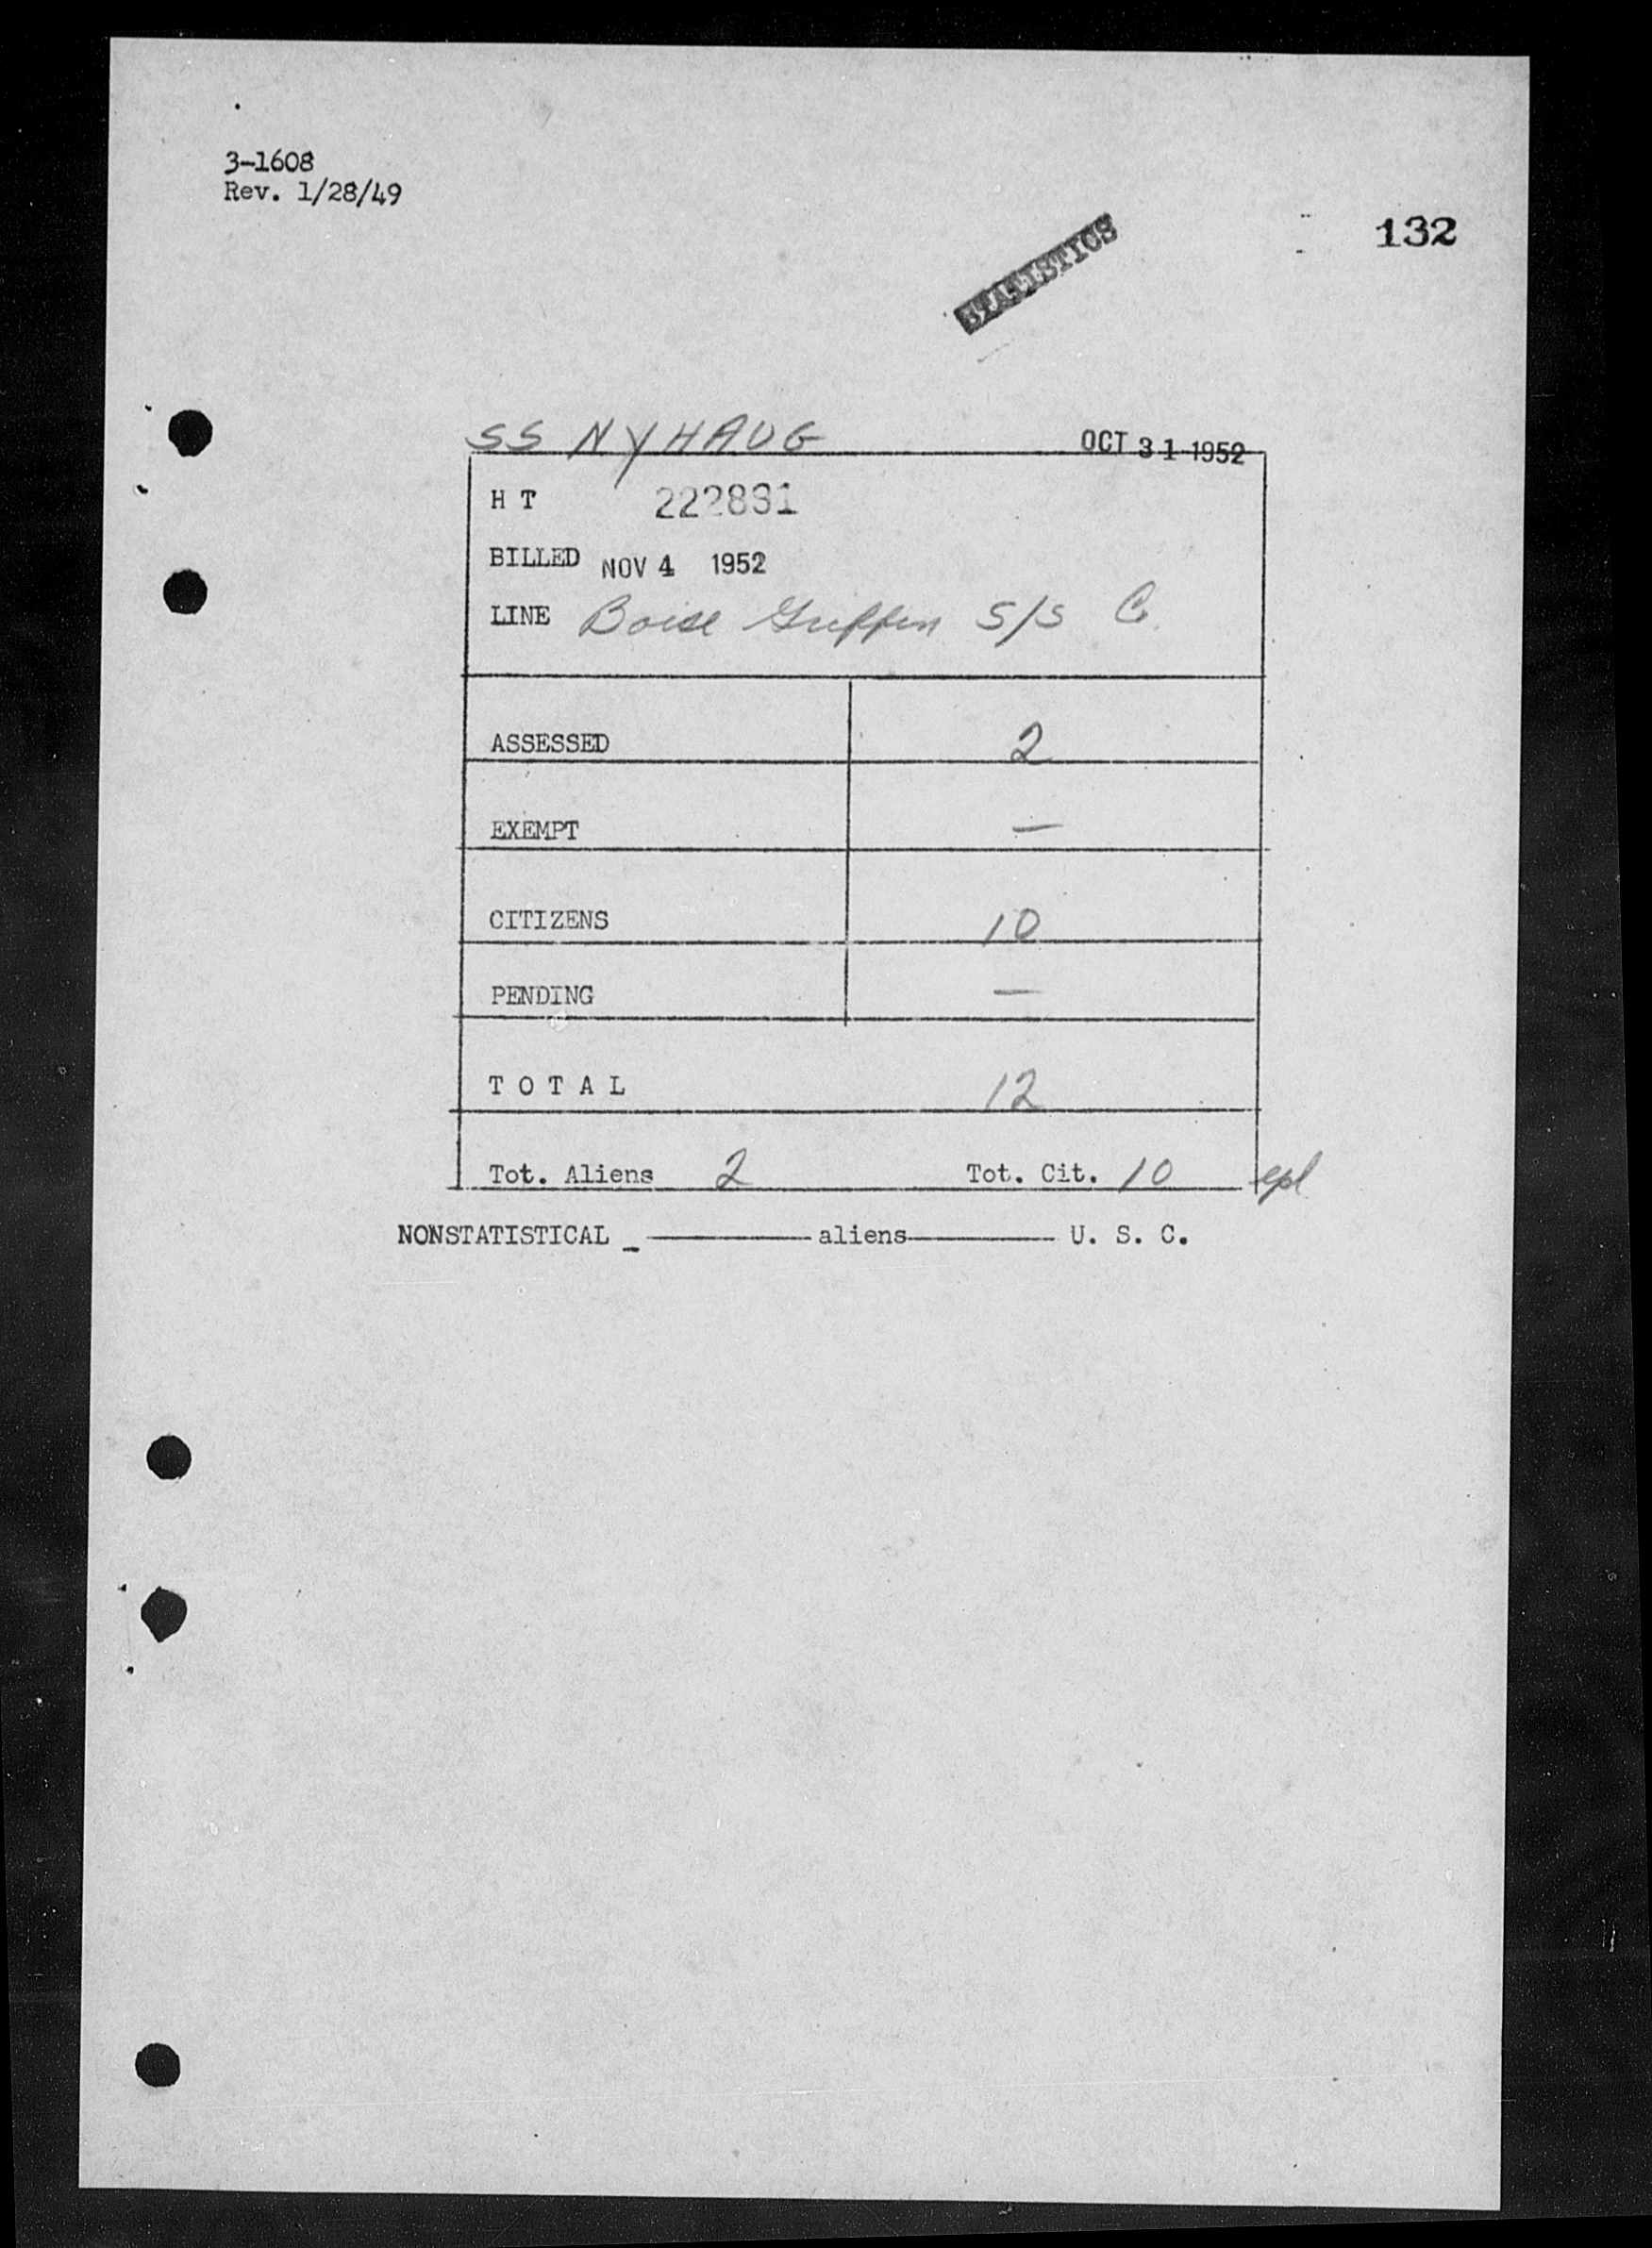 3-1608
Rev. 1/28/49
132
STATISTICS
SS NYHAUG OCT 31 1952
H T 222831
BILLED NOV 4 1952
LINE Boise Griffin S/S Co.
ASSESSED 2
EXEMPT —
CITIZENS 10
PENDING —
T O T A L 12
Tot. Aliens 2 Tot. Cit. 10 epl
NONSTATISTICAL _ ———— aliens ———— U. S. C.